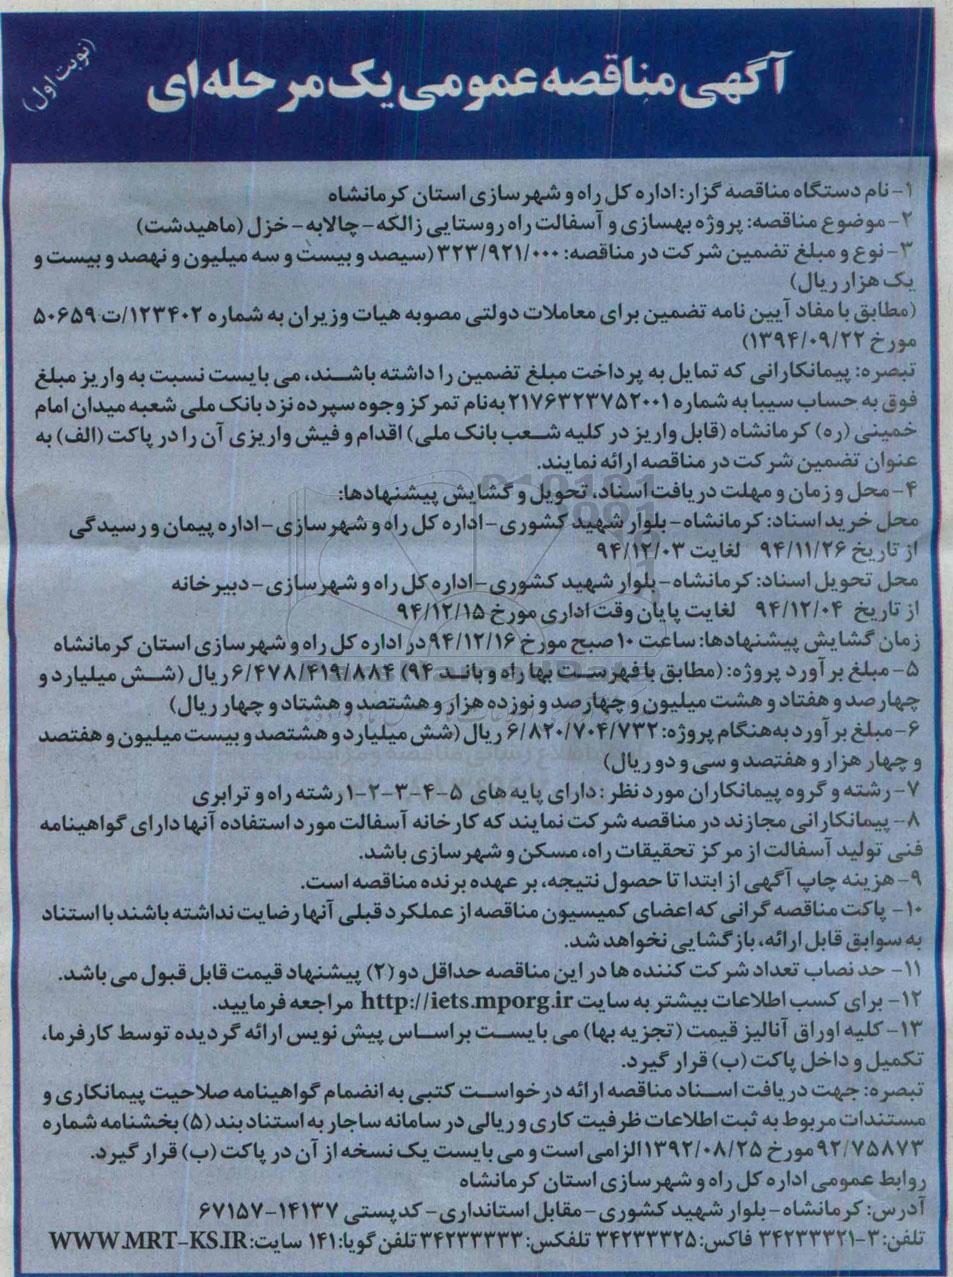 آگهی مناقصه عمومی یک مرحله‌ای
(نوبت اول)
۱- نام دستگاه مناقصه گزار: اداره کل راه و شهرسازی استان کرمانشاه
۲- موضوع مناقصه: پروژه بهسازی و آسفالت راه روستایی زالکه- چالابه- خزل (ماهیدشت)
۳- نوع و مبلغ تضمین شرکت در مناقصه: ۳۲۳/۹۲۱/۰۰۰ (سیصد و بیست و سه میلیون و نهصد و بیست و
یک هزار ریال)
(مطابق با مفاد آیین نامه تضمین برای معاملات دولتی مصوبه هیات وزیران به شماره ۱۲۳۴۰۲/ت ۵۰۶۵۹
مورخ ۱۳۹۴/۰۹/۲۲)
تبصره: پیمانکارانی که تمایل به پرداخت مبلغ تضمین را داشته باشند، می بایست نسبت به واریز مبلغ
فوق به حساب سیبا به شماره ۲۱۷۶۳۲۳۷۵۲۰۰۱ به‌نام تمرکز وجوه سپرده نزد بانک ملی شعبه میدان امام
خمینی (ره) کرمانشاه (قابل واریز در کلیه شعب بانک ملی) اقدام و فیش واریزی آن را در پاکت (الف) به
عنوان تضمین شرکت در مناقصه ارائه نمایند.
۴- محل و زمان و مهلت دریافت اسناد، تحویل و گشایش پیشنهادها:
محل خرید اسناد: کرمانشاه- بلوار شهید کشوری- اداره کل راه و شهرسازی- اداره پیمان و رسیدگی
از تاریخ ۹۴/۱۱/۲۶ لغایت ۹۴/۱۲/۰۳
محل تحویل اسناد: کرمانشاه- بلوار شهید کشوری- اداره کل راه و شهرسازی- دبیرخانه
از تاریخ ۹۴/۱۲/۰۴ لغایت پایان وقت اداری مورخ ۹۴/۱۲/۱۵
زمان گشایش پیشنهادها: ساعت ۱۰ صبح مورخ ۹۴/۱۲/۱۶ در اداره کل راه و شهرسازی استان کرمانشاه
۵- مبلغ برآورد پروژه: (مطابق با فهرست بها راه و باند ۹۴) ۶/۴۷۸/۴۱۹/۸۸۴ ریال (شش میلیارد و
چهارصد و هفتاد و هشت میلیون و چهارصد و نوزده هزار و هشتصد و هشتاد و چهار ریال)
۶- مبلغ برآورد به‌هنگام پروژه: ۶/۸۲۰/۷۰۴/۷۳۲ ریال (شش میلیارد و هشتصد و بیست میلیون و هفتصد
و چهار هزار و هفتصد و سی و دو ریال)
۷- رشته و گروه پیمانکاران مورد نظر: دارای پایه های ۵-۴-۳-۲-۱ رشته راه و ترابری
۸- پیمانکارانی مجازند در مناقصه شرکت نمایند که کارخانه آسفالت مورد استفاده آنها دارای گواهینامه
فنی تولید آسفالت از مرکز تحقیقات راه، مسکن و شهرسازی باشد.
۹- هزینه چاپ آگهی از ابتدا تا حصول نتیجه، بر عهده برنده مناقصه است.
۱۰- پاکت مناقصه گرانی که اعضای کمیسیون مناقصه از عملکرد قبلی آنها رضایت نداشته باشند با استناد
به سوابق قابل ارائه، بازگشایی نخواهد شد.
۱۱- حد نصاب تعداد شرکت کننده ها در این مناقصه حداقل دو (۲) پیشنهاد قیمت قابل قبول می باشد.
۱۲- برای کسب اطلاعات بیشتر به سایت http://iets.mporg.ir مراجعه فرمایید.
۱۳- کلیه اوراق آنالیز قیمت (تجزیه بها) می بایست براساس پیش نویس ارائه گردیده توسط کارفرما،
تکمیل و داخل پاکت (ب) قرار گیرد.
تبصره: جهت دریافت اسناد مناقصه ارائه درخواست کتبی به انضمام گواهینامه صلاحیت پیمانکاری و
مستندات مربوط به ثبت اطلاعات ظرفیت کاری و ریالی در سامانه ساجار به استناد بند (۵) بخشنامه شماره
۹۲/۷۵۸۷۳ مورخ ۱۳۹۲/۰۸/۲۵ الزامی است و می بایست یک نسخه از آن در پاکت (ب) قرار گیرد.
روابط عمومی اداره کل راه و شهرسازی استان کرمانشاه
آدرس: کرمانشاه- بلوار شهید کشوری- مقابل استانداری- کدپستی ۱۴۱۳۷-۶۷۱۵۷
تلفن: ۳-۳۴۲۳۳۳۲۱ فاکس: ۳۴۲۳۳۳۲۵ تلفکس: ۳۴۲۳۳۳۳۳ تلفن گویا: ۱۴۱ سایت: WWW.MRT-KS.IR